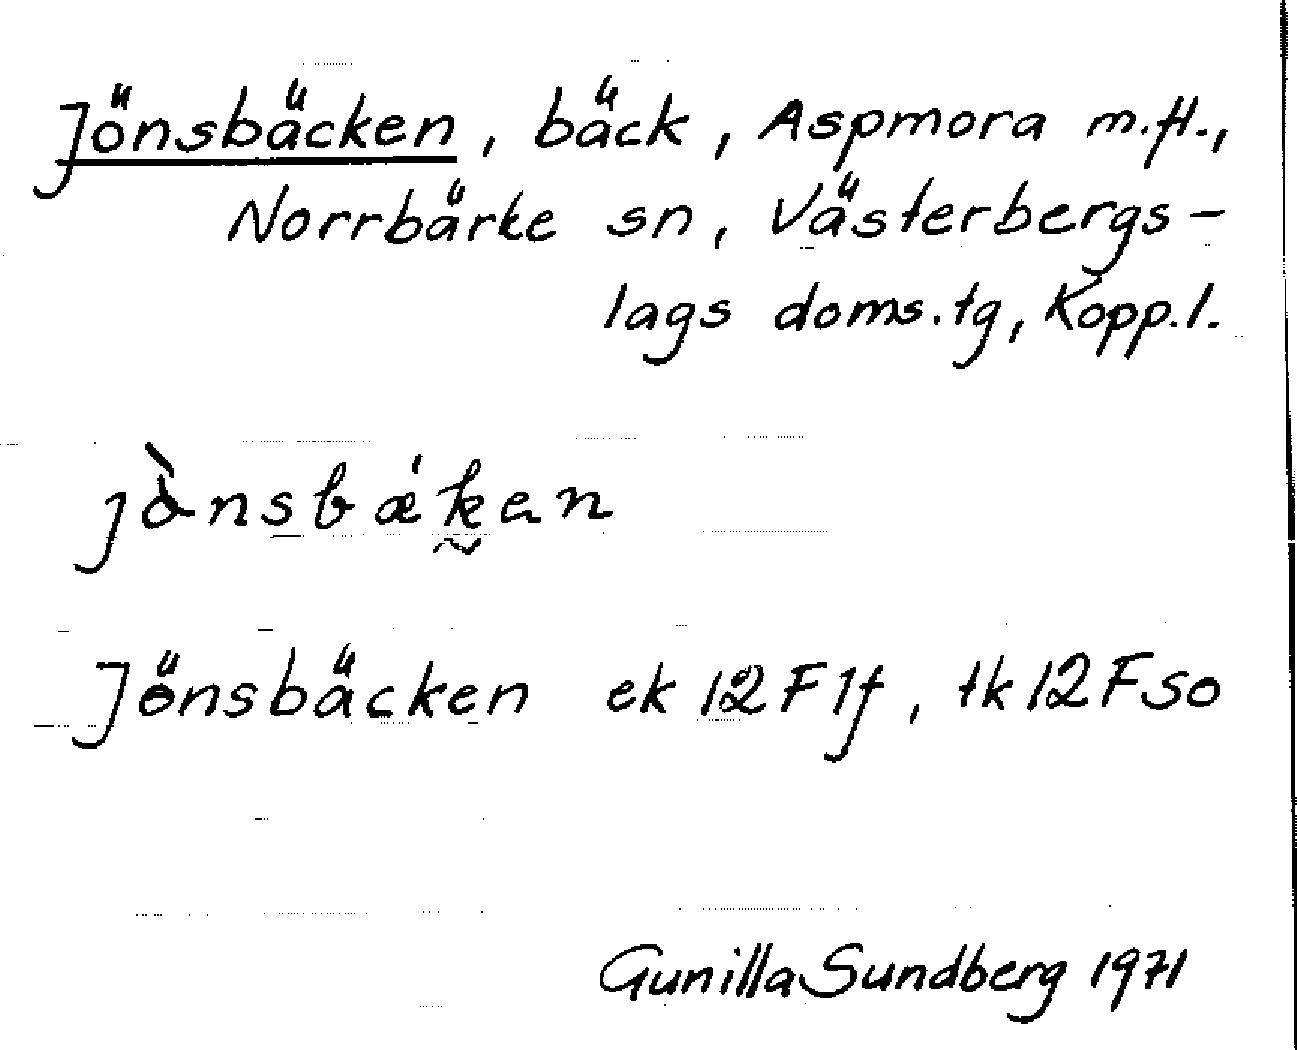 Jönsbäcken, bäck, Aspmora m.fl.,
Norrbärke sn, Västerbergs-
lags doms.tg, Kopp.l.
jònsbǽken
Jönsbäcken ek 12F1f, tk12Fso
Gunilla Sundberg 1971